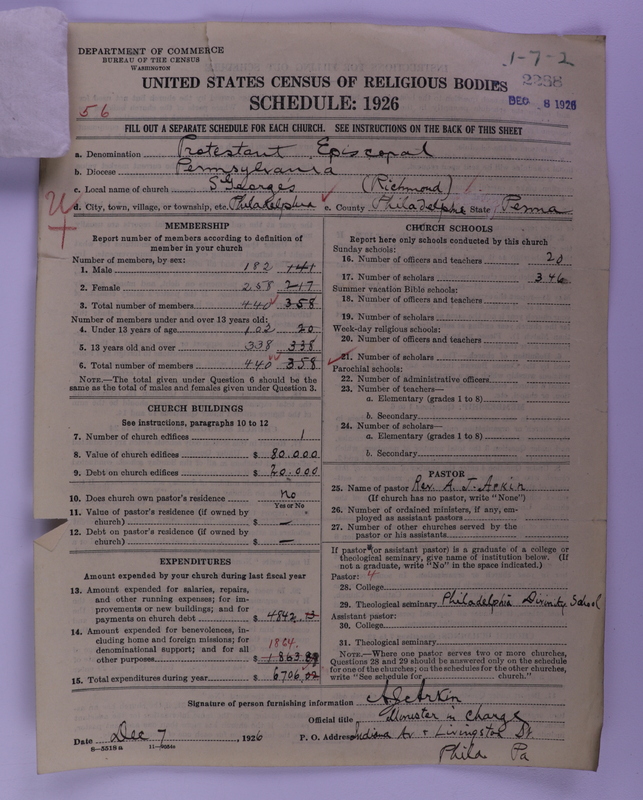 DEPARTMENT OF COMMERCE
BUREAU OF THE CENSUS
WASHINGTON
1-7-2
2268
DEC 8 1926
UNITED STATES CENSUS OF RELIGIOUS BODIES
SCHEDULE: 1926
56
FILL OUT A SEPARATE SCHEDULE FOR EACH CHURCH. SEE INSTRUCTIONS ON THE BACK OF THIS SHEET
a. Denomination Protestant Episcopal
b. Diocese Pennsylvania
c. Local name of church St Georges (Richmond)
d. City, town, village, or township, etc. Philadelphia e. County Philadelphia State Penna
MEMBERSHIP
Report number of members according to definition of
member in your church
Number of members, by sex:
1. Male 182 141
2. Female 258 217
3. Total number of members 440 358
Number of members under and over 13 years old:
4. Under 13 years of age 102 20
5. 13 years old and over 338 338
6. Total number of members 440 358
NOTE.—The total given under Question 6 should be the
same as the total of males and females given under Question 3.
CHURCH BUILDINGS
See instructions, paragraphs 10 to 12
7. Number of church edifices 1
8. Value of church edifices $ 80.000
9. Debt on church edifices $ 20.000
10. Does church own pastor's residence no
Yes or No
11. Value of pastor's residence (if owned by
church) $ —
12. Debt on pastor's residence (if owned by
church) $ —
EXPENDITURES
Amount expended by your church during last fiscal year
13. Amount expended for salaries, repairs,
and other running expenses; for im-
provements or new buildings; and for
payments on church debt $ 4842.
14. Amount expended for benevolences, in-
cluding home and foreign missions; for
denominational support; and for all
other purposes $ 1864. 1863.89
15. Total expenditures during year $ 6706.02
CHURCH SCHOOLS
Report here only schools conducted by this church
Sunday schools:
16. Number of officers and teachers 20
17. Number of scholars 346
Summer vacation Bible schools:
18. Number of officers and teachers
19. Number of scholars
Week-day religious schools:
20. Number of officers and teachers
21. Number of scholars
Parochial schools:
22. Number of administrative officers
23. Number of teachers—
a. Elementary (grades 1 to 8)
b. Secondary
24. Number of scholars—
a. Elementary (grades 1 to 8)
b. Secondary
PASTOR
25. Name of pastor Rev. A. J. Arkin
(If church has no pastor, write "None")
26. Number of ordained ministers, if any, em-
ployed as assistant pastors
27. Number of other churches served by the
pastor or his assistants
If pastor (or assistant pastor) is a graduate of a college or
theological seminary, give name of institution below. (If
not a graduate, write "No" in the space indicated.)
Pastor: 4
28. College
29. Theological seminary Philadelphia Divinity School
Assistant pastor:
30. College
31. Theological seminary
NOTE.—Where one pastor serves two or more churches,
Questions 28 and 29 should be answered only on the schedule
for one of the churches; on the schedules for the other churches,
write "See schedule for church."
Signature of person furnishing information A J Arkin
Official title Minister in Charge
Date Dec 7, 1926 P. O. Address Indiana Av + Livingston St
Phila Pa
8-5518a